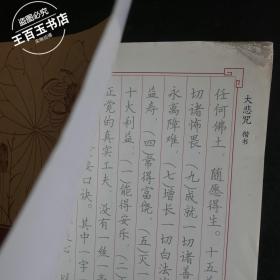 盗图必究
王百玉书店
大悲咒 楷书
任何佛土，随愿得生。十五
切诸怖畏，（九）成就一切诸善
永离障难，（七）增长一切白法
益寿，（四）常得富饶，（五）灭一
十大利益，（一）能得安乐，（二）
正觉的真实工夫，没有丝
口诀。其中一字